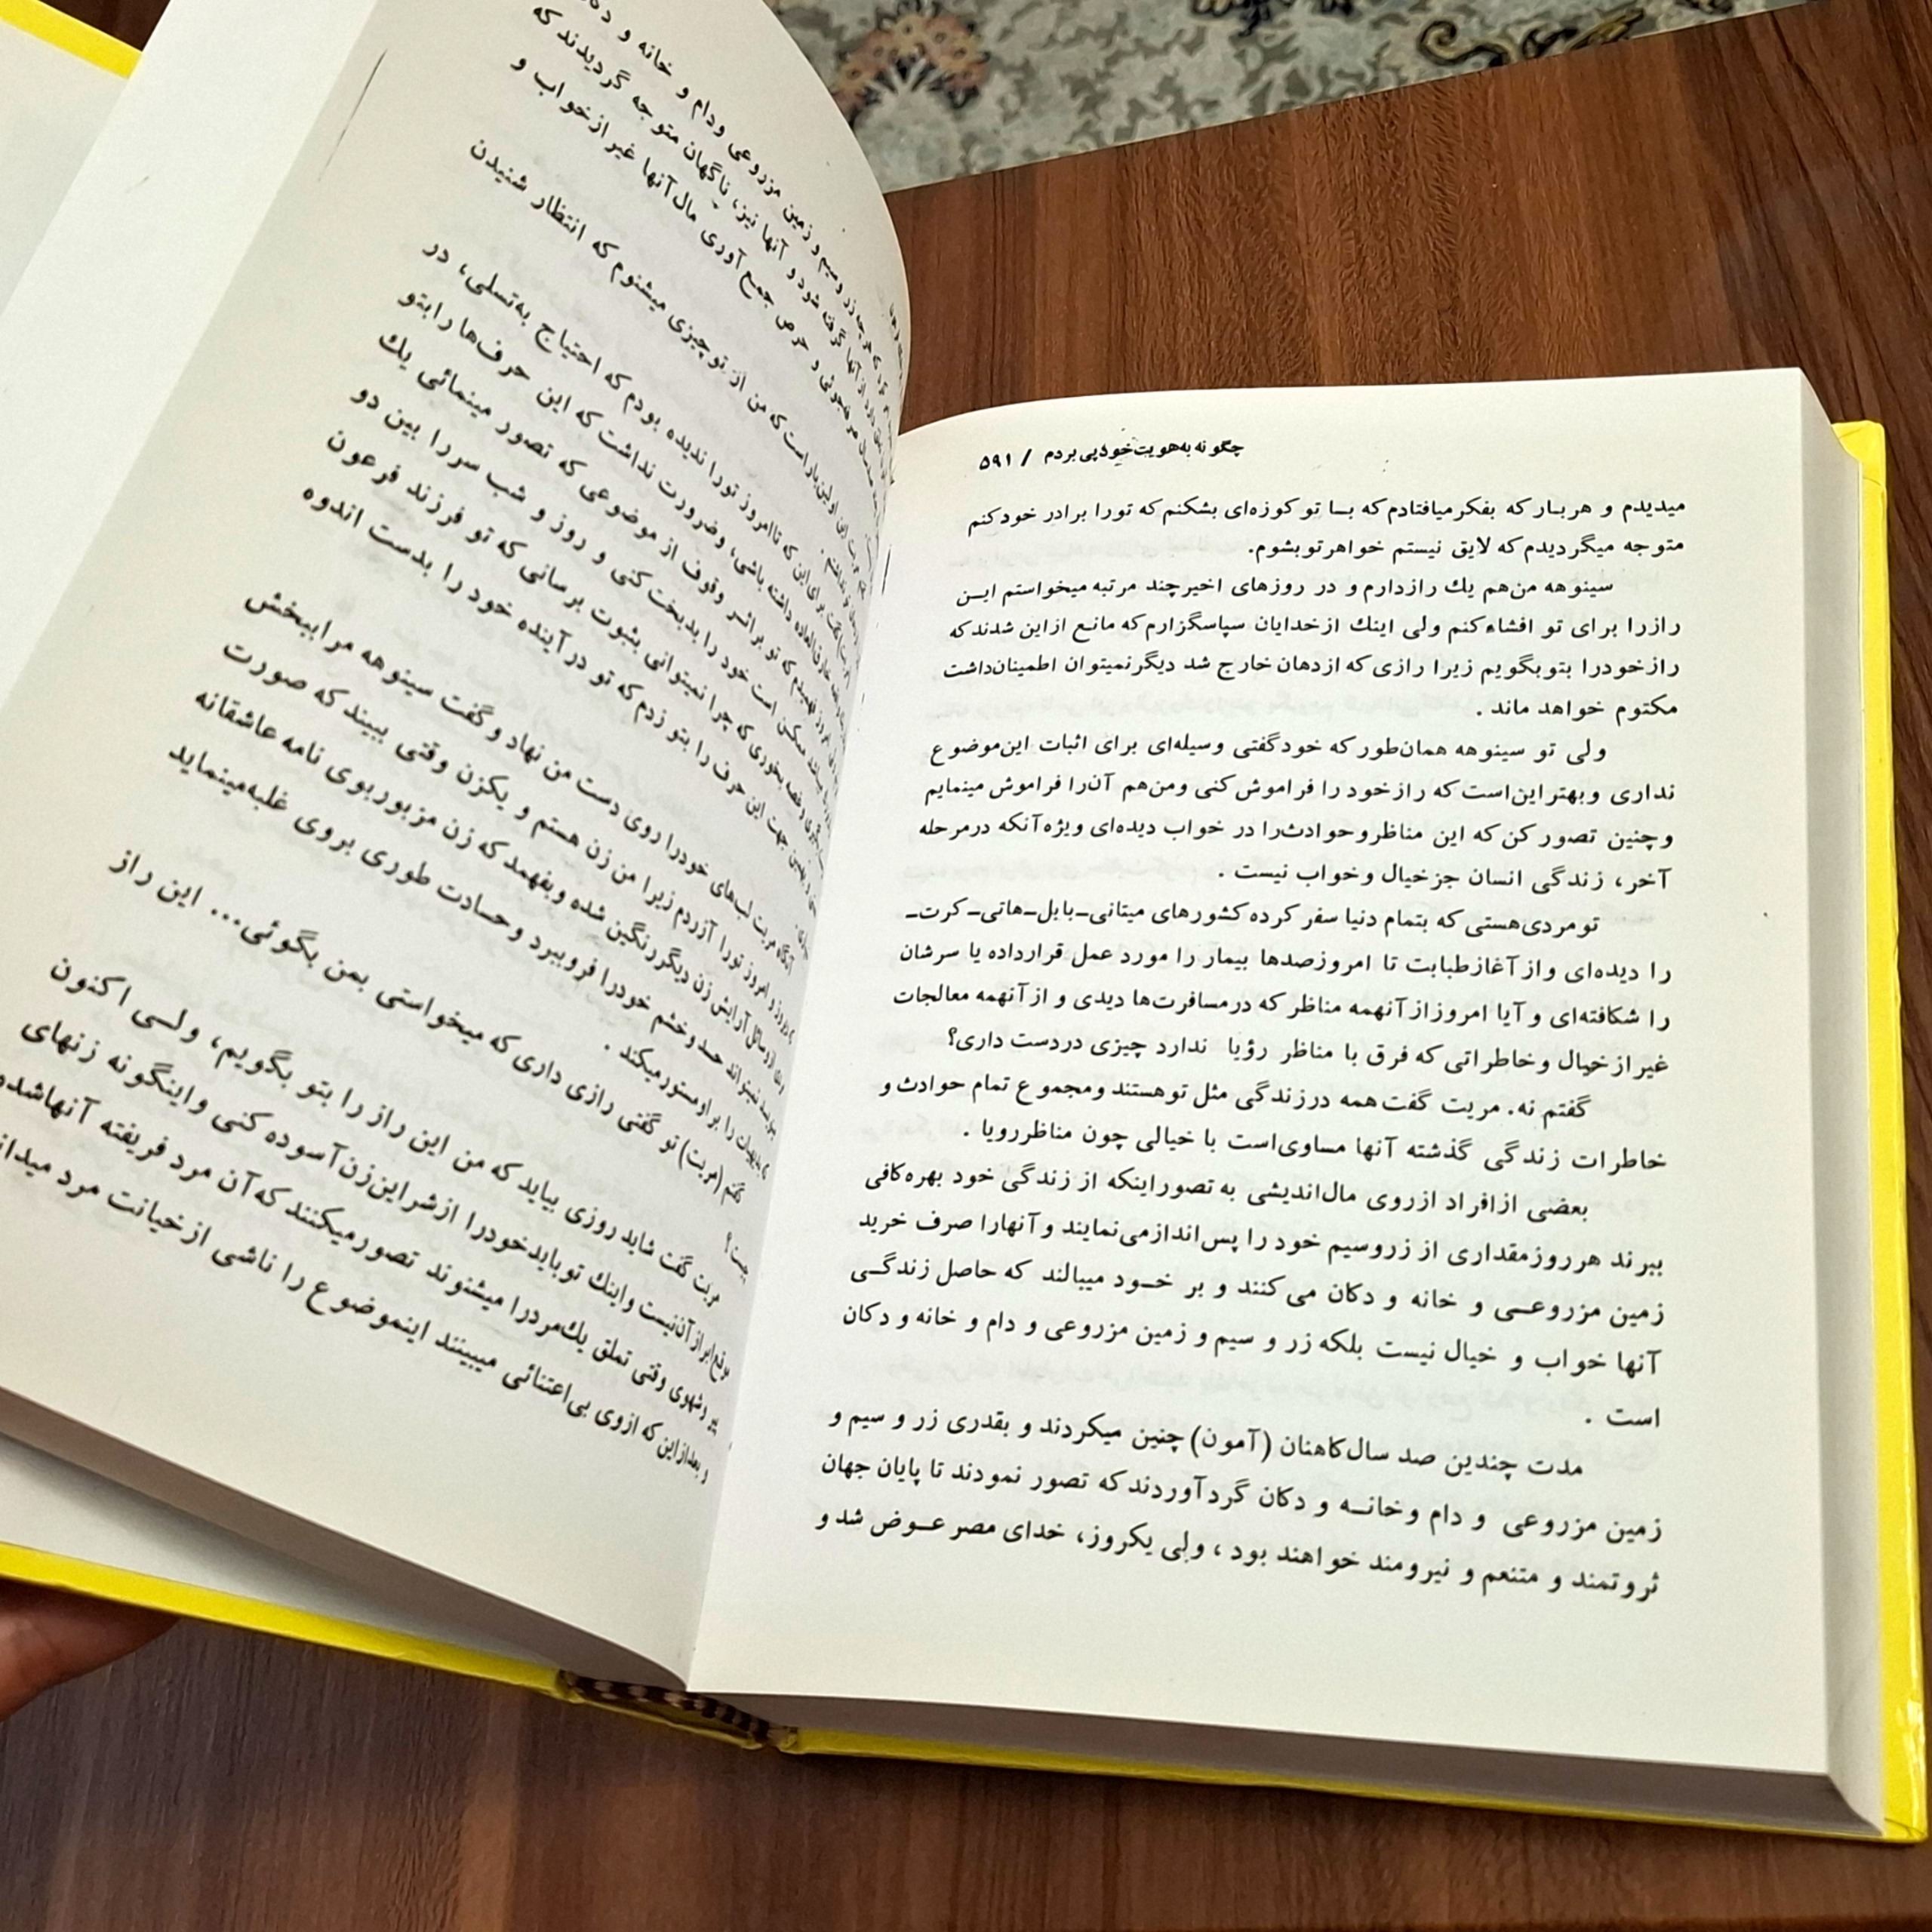 چگونه به هویت خود پی بردم / ۵۹۱
میدیدم و هربار که بفکر میافتادم که با تو کوزه‌ای بشکنم که تورا برادر خود کنم
متوجه میگردیدم که لایق نیستم خواهر تو بشوم.
سینوهه من هم یك راز دارم و در روزهای اخیر چند مرتبه میخواستم ایـن
راز را برای تو افشاء کنم ولی اینك از خدایان سپاسگزارم که مانع از این شدند که
راز خود را بتو بگویم زیرا رازی که از دهان خارج شد دیگر نمیتوان اطمینان داشت
مکتوم خواهد ماند .
ولی تو سینوهه همان‌طور که خود گفتی وسیله‌ای برای اثبات این موضوع
نداری و بهتر این است که راز خود را فراموش کنی و من هم آن را فراموش مینمایم
و چنین تصور کن که این مناظر و حوادث را در خواب دیده‌ای ویژه آنکه در مرحله
آخر، زندگی انسان جز خیال و خواب نیست .
تو مردی هستی که بتمام دنیا سفر کرده کشورهای میتانی ـ بابل ـ هاتی ـ کرت ـ
را دیده‌ای و از آغاز طبابت تا امروز صدها بیمار را مورد عمل قرار داده یا سرشان
را شکافته‌ای و آیا امروز از آنهمه مناظر که در مسافرت‌ها دیدی و از آنهمه معالجات
غیر از خیال و خاطراتی که فرق با مناظر رؤیا ندارد چیزی در دست داری؟
گفتم نه. مریت گفت همه در زندگی مثل تو هستند و مجموع تمام حوادث و
خاطرات زندگی گذشته آنها مساوی است با خیالی چون مناظر رویا .
بعضی از افراد از روی مال‌اندیشی به تصور اینکه از زندگی خود بهره کافی
ببرند هر روز مقداری از زر و سیم خود را پس‌انداز می‌نمایند و آنها را صرف خرید
زمین مزروعـی و خانه و دکان می کنند و بر خـود میبالند که حاصل زندگـی
آنها خواب و خیال نیست بلکه زر و سیم و زمین مزروعی و دام و خانه و دکان
است .
مدت چندین صد سال کاهنان (آمون) چنین میکردند و بقدری زر و سیم و
زمین مزروعی و دام و خانـه و دکان گرد آوردند که تصور نمودند تا پایان جهان
ثروتمند و متنعم و نیرومند خواهند بود ، ولی یکروز، خدای مصر عـوض شد و
زر و سیم و زمین مزروعی و دام و خانه و
گرفته شود و آنها نیز، ناگهان متوجه گردیدند که
و حرص جمع آوری مال آنها غیر از خواب و
این اولین بار است که من از تو چیزی میشنوم که انتظار شنیدن
برای این که تا امروز تورا ندیده بودم که احتیاج به تسلی، در
داشته باشی، و ضرورت نداشت که این حرف‌ها را بتو
که تو بر اثر وقوف از موضوعی که تصور مینمائی یك
ممکن است خود را بدبخت کنی و روز و شب سر را بین دو
بخوری که چرا نمیتوانی بثبوت برسانی که تو فرزند فرعون
جهت این حرف را بتو زدم که تو در آینده خود را بدست اندوه
آنگاه مریت لب‌های خود را روی دست من نهاد و گفت سینوهه مرا ببخش
امروز تورا آزردم زیرا من زن هستم و یکزن وقتی ببیند که صورت
آرایش زن دیگر رنگین شده و بفهمد که زن مزبور بوی نامه عاشقانه
نمیتواند حسد و خشم خود را فرو ببرد و حسادت طوری بروی غلبه مینماید
را بر او مستور میکند .
گفتم (مریت) تو گفتی رازی داری که میخواستی بمن بگوئی... این راز
چیست؟
مریت گفت شاید روزی بیاید که من این راز را بتو بگویم، ولـی اکنون
موقع ابراز آن نیست و اینك تو باید خود را از شر این زن آسوده کنی و اینگونه زنهای
پیر و شهوی وقتی تملق یك مرد را میشنوند تصور میکنند که آن مرد فریفته آنها شده
و بعد از این که از وی بی‌اعتنائی میبینند اینموضوع را ناشی از خیانت مرد